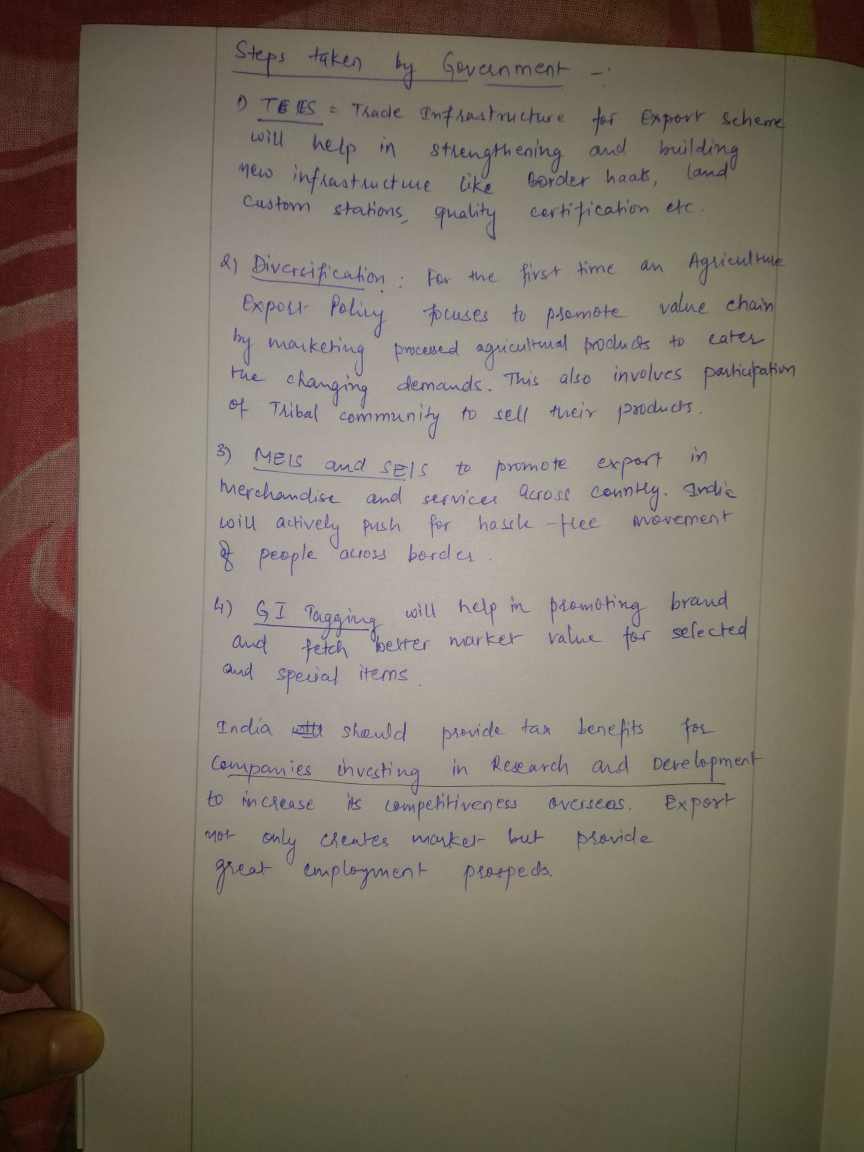 Steps taken by Government -:
1) TEIES = Trade Infrastructure for Export scheme
will help in strengthening and building
new infrastructure like Border haats, land
custom stations, quality certification etc.
2) Diversification : For the first time an Agriculture
Export Policy focuses to promote value chain
by marketing processed agricultural products to cater
the changing demands. This also involves participation
of Tribal community to sell their products.
3) MEIS and SEIS to promote export in
Merchandise and services across country. India
will actively push for hassle-free movement
of people across border.
4) GI Tagging will help in promoting brand
and fetch better market value for selected
and special items.
India should provide tax benefits for
Companies investing in Research and Development
to increase its competitiveness overseas. Export
not only creates market but provide
great employment prospects.